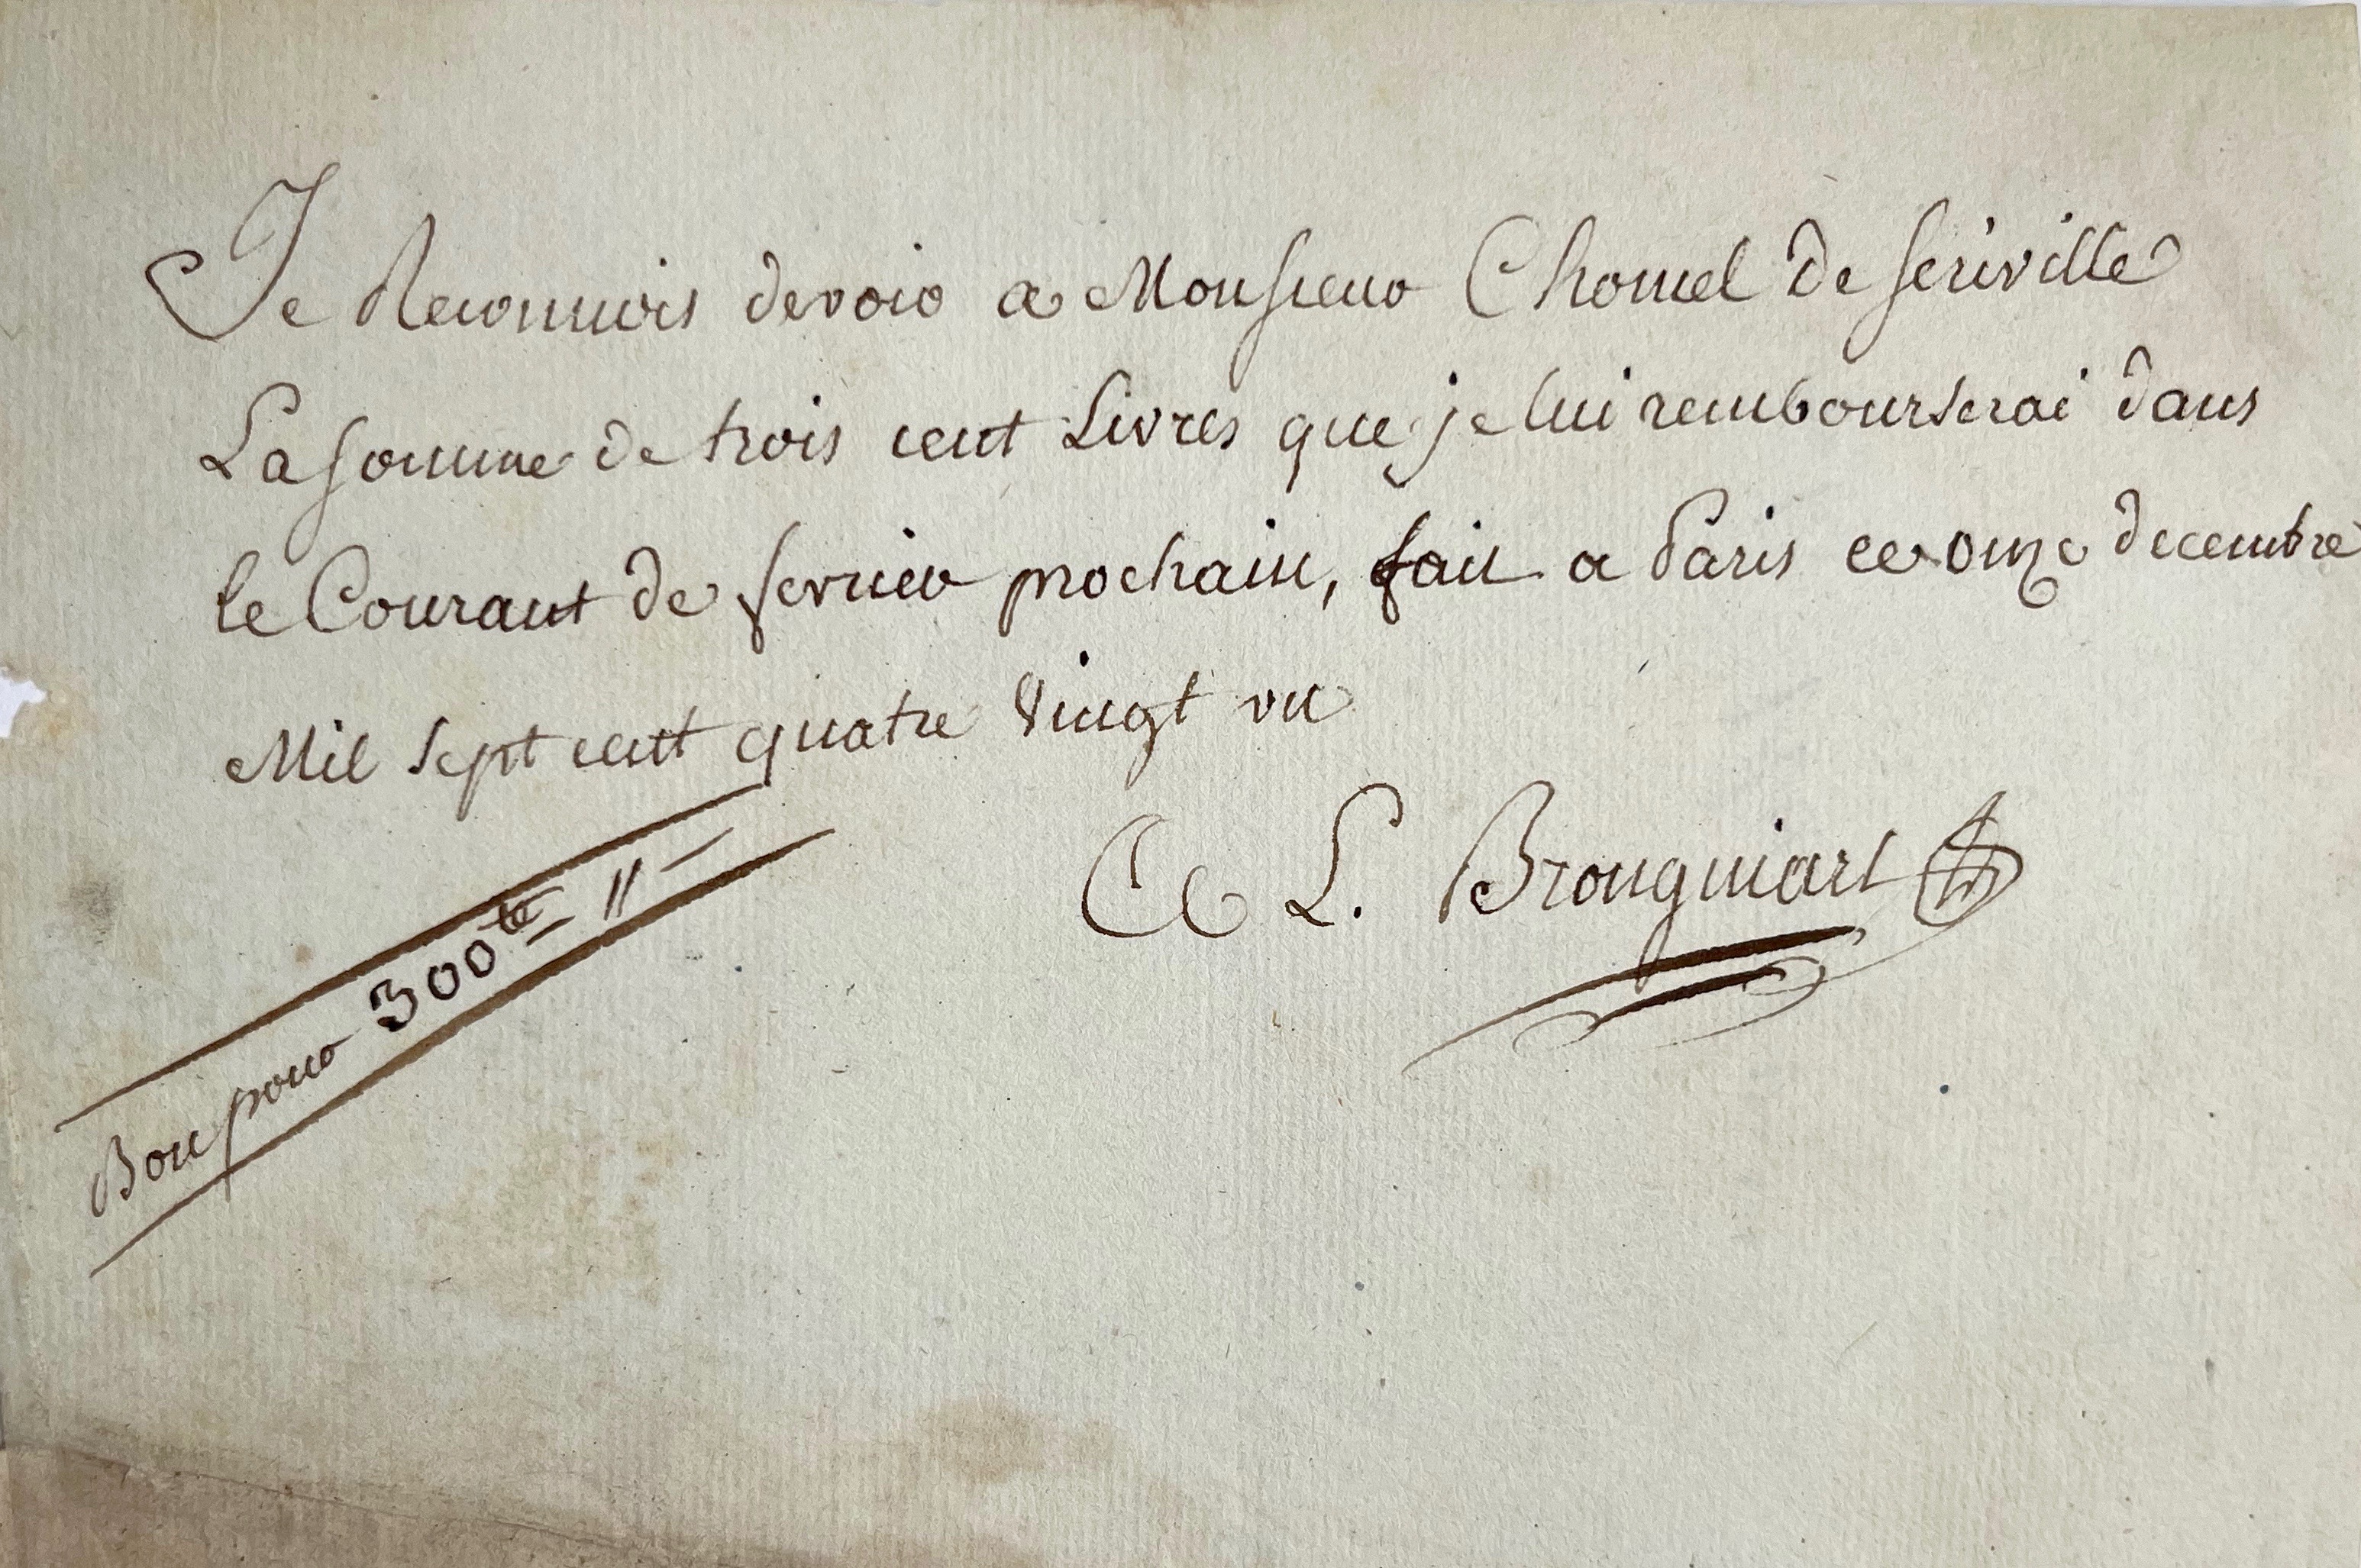 Je Reconnois devoir a Monsieur Chomel de seriville
La somme de trois cent Livres que je lui rembourserai dans
le Courant de fevrier prochain, fait a Paris ce onze decembre
Mil sept cent quatre Vingt un
L. Brongniart
Bon pour 300 ₶ "